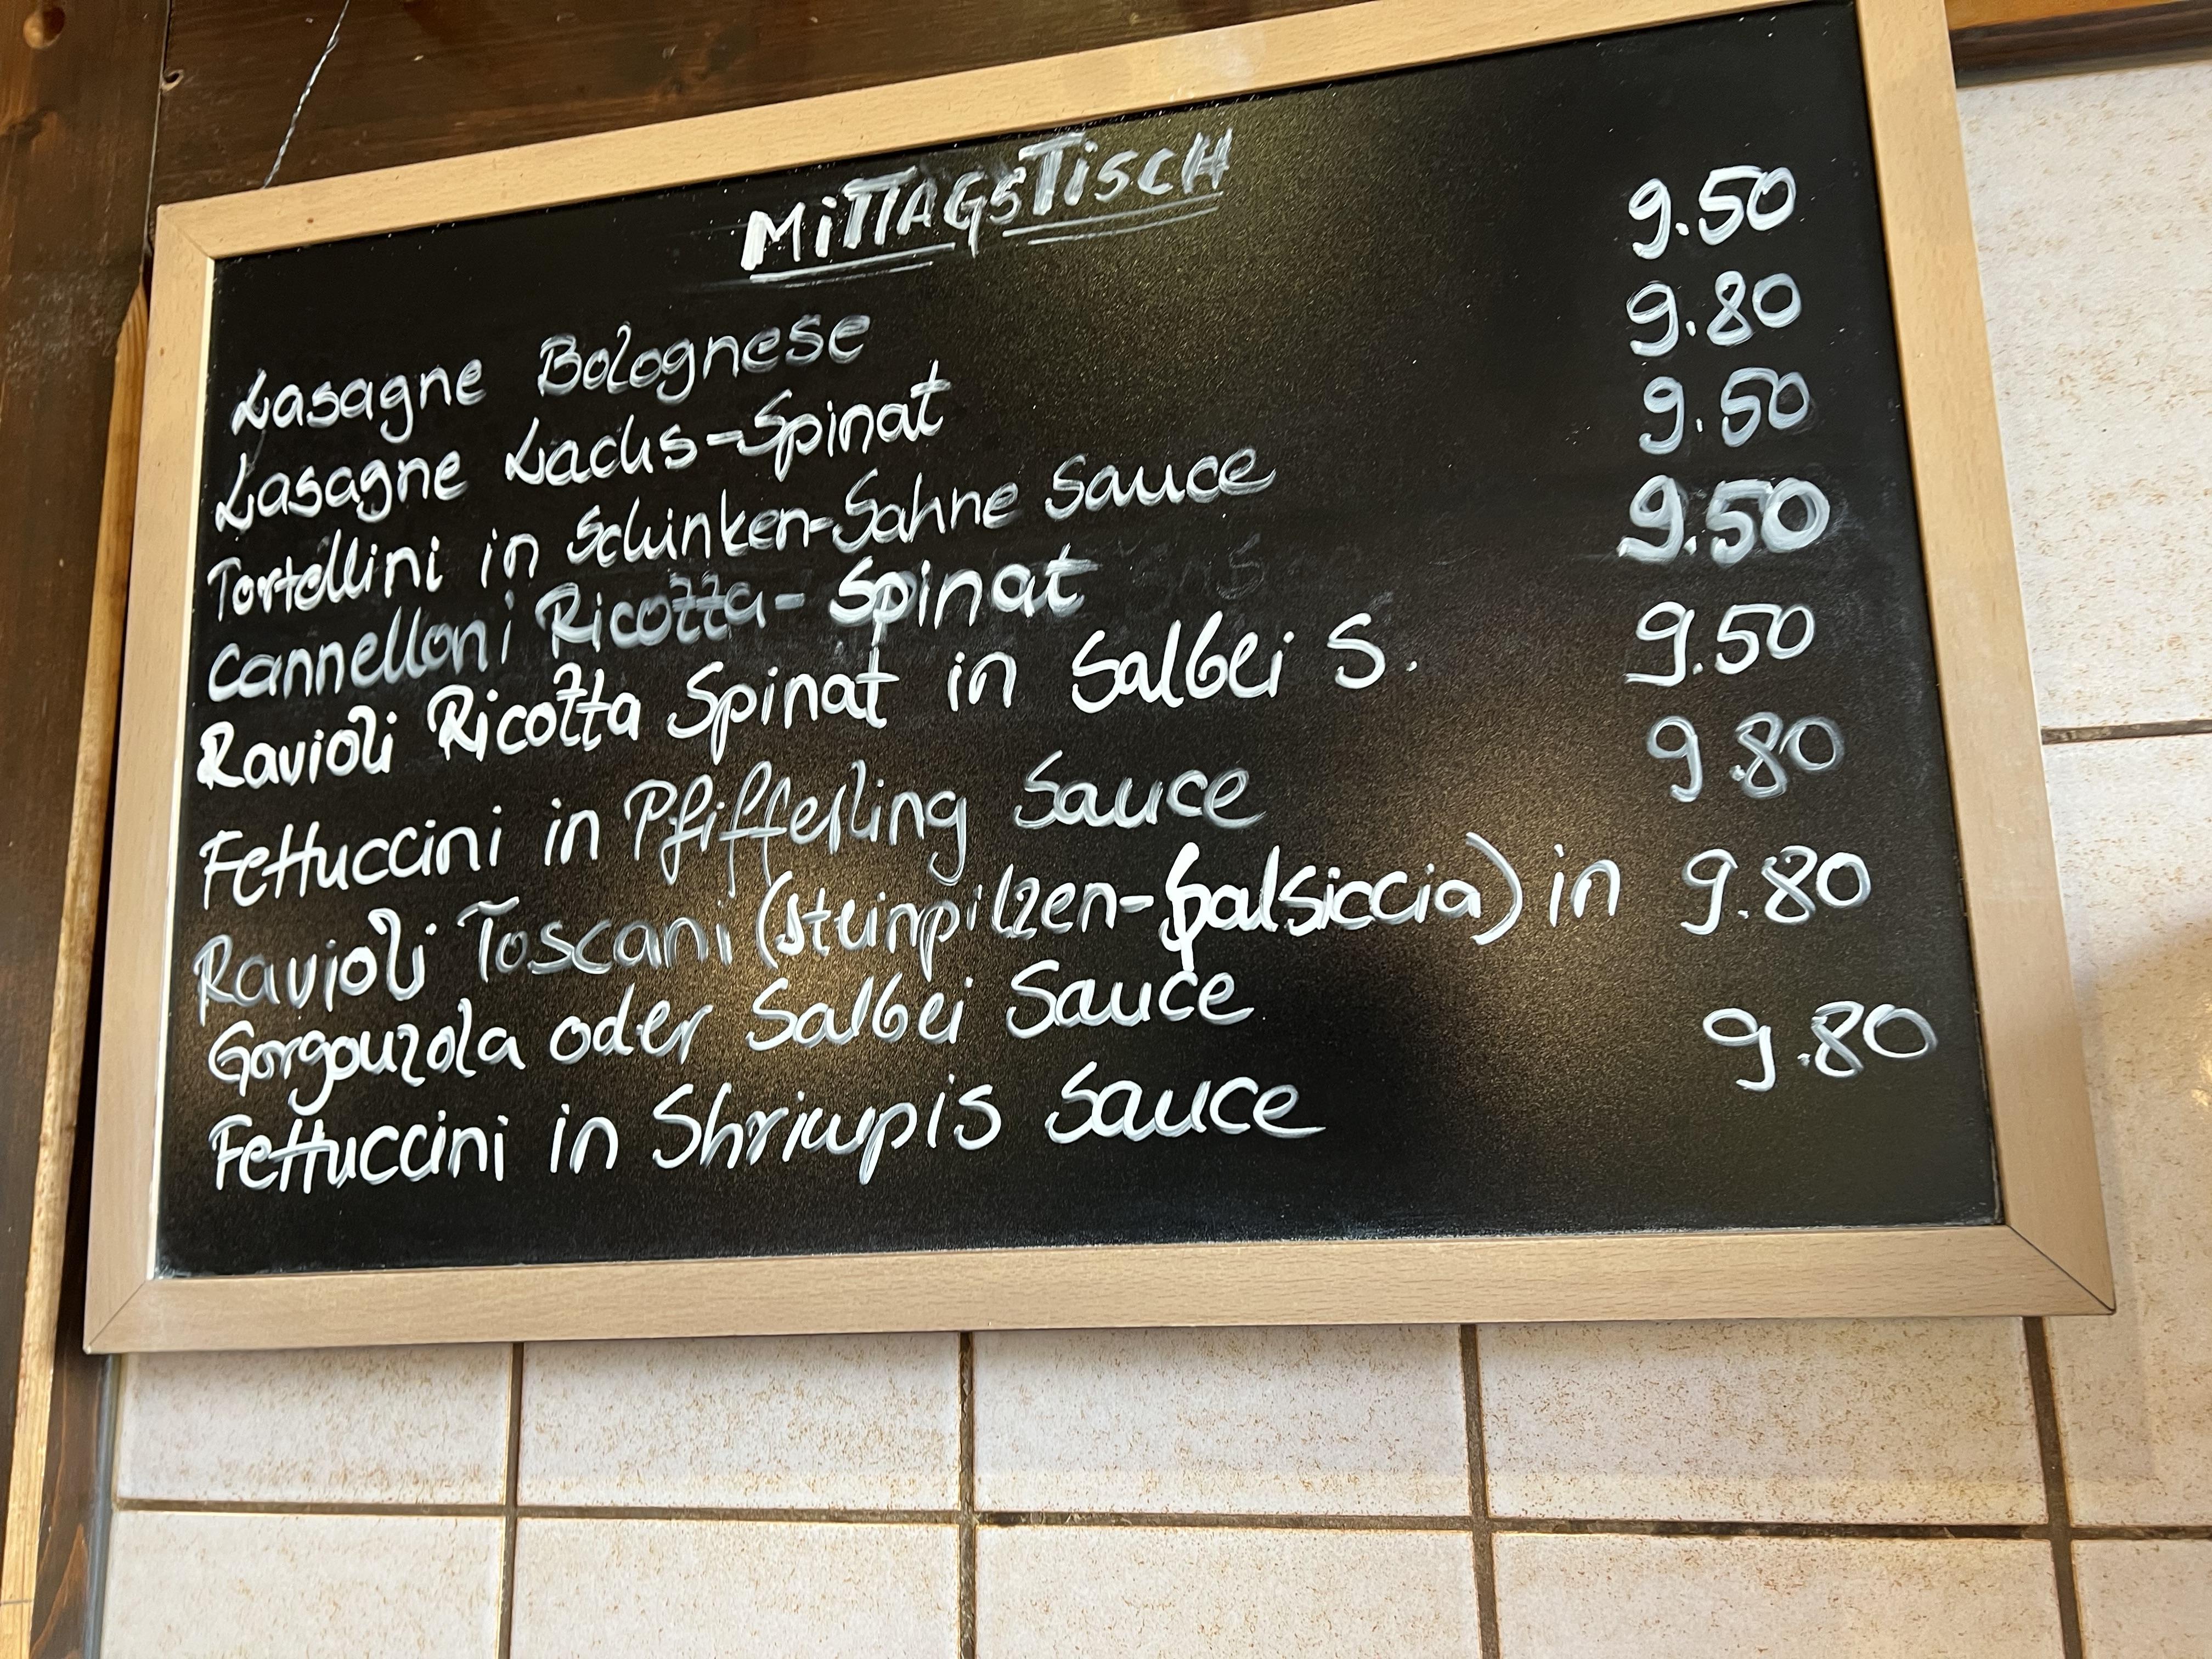 MiTTAGSTiSCH
Lasagne Bolognese 9.50
Lasagne Lachs-Spinat 9.80
Tortellini in Schinken-Sahne Sauce 9.50
Cannelloni Ricotta-Spinat 9.50
Ravioli Ricotta Spinat in Salbei S. 9.50
Fettuccini in Pfifferling Sauce 9.80
Ravioli Toscani (Steinpilzen-Salsiccia) in 9.80
Gorgonzola oder Salbei Sauce
Fettuccini in Shrimpis Sauce 9.80